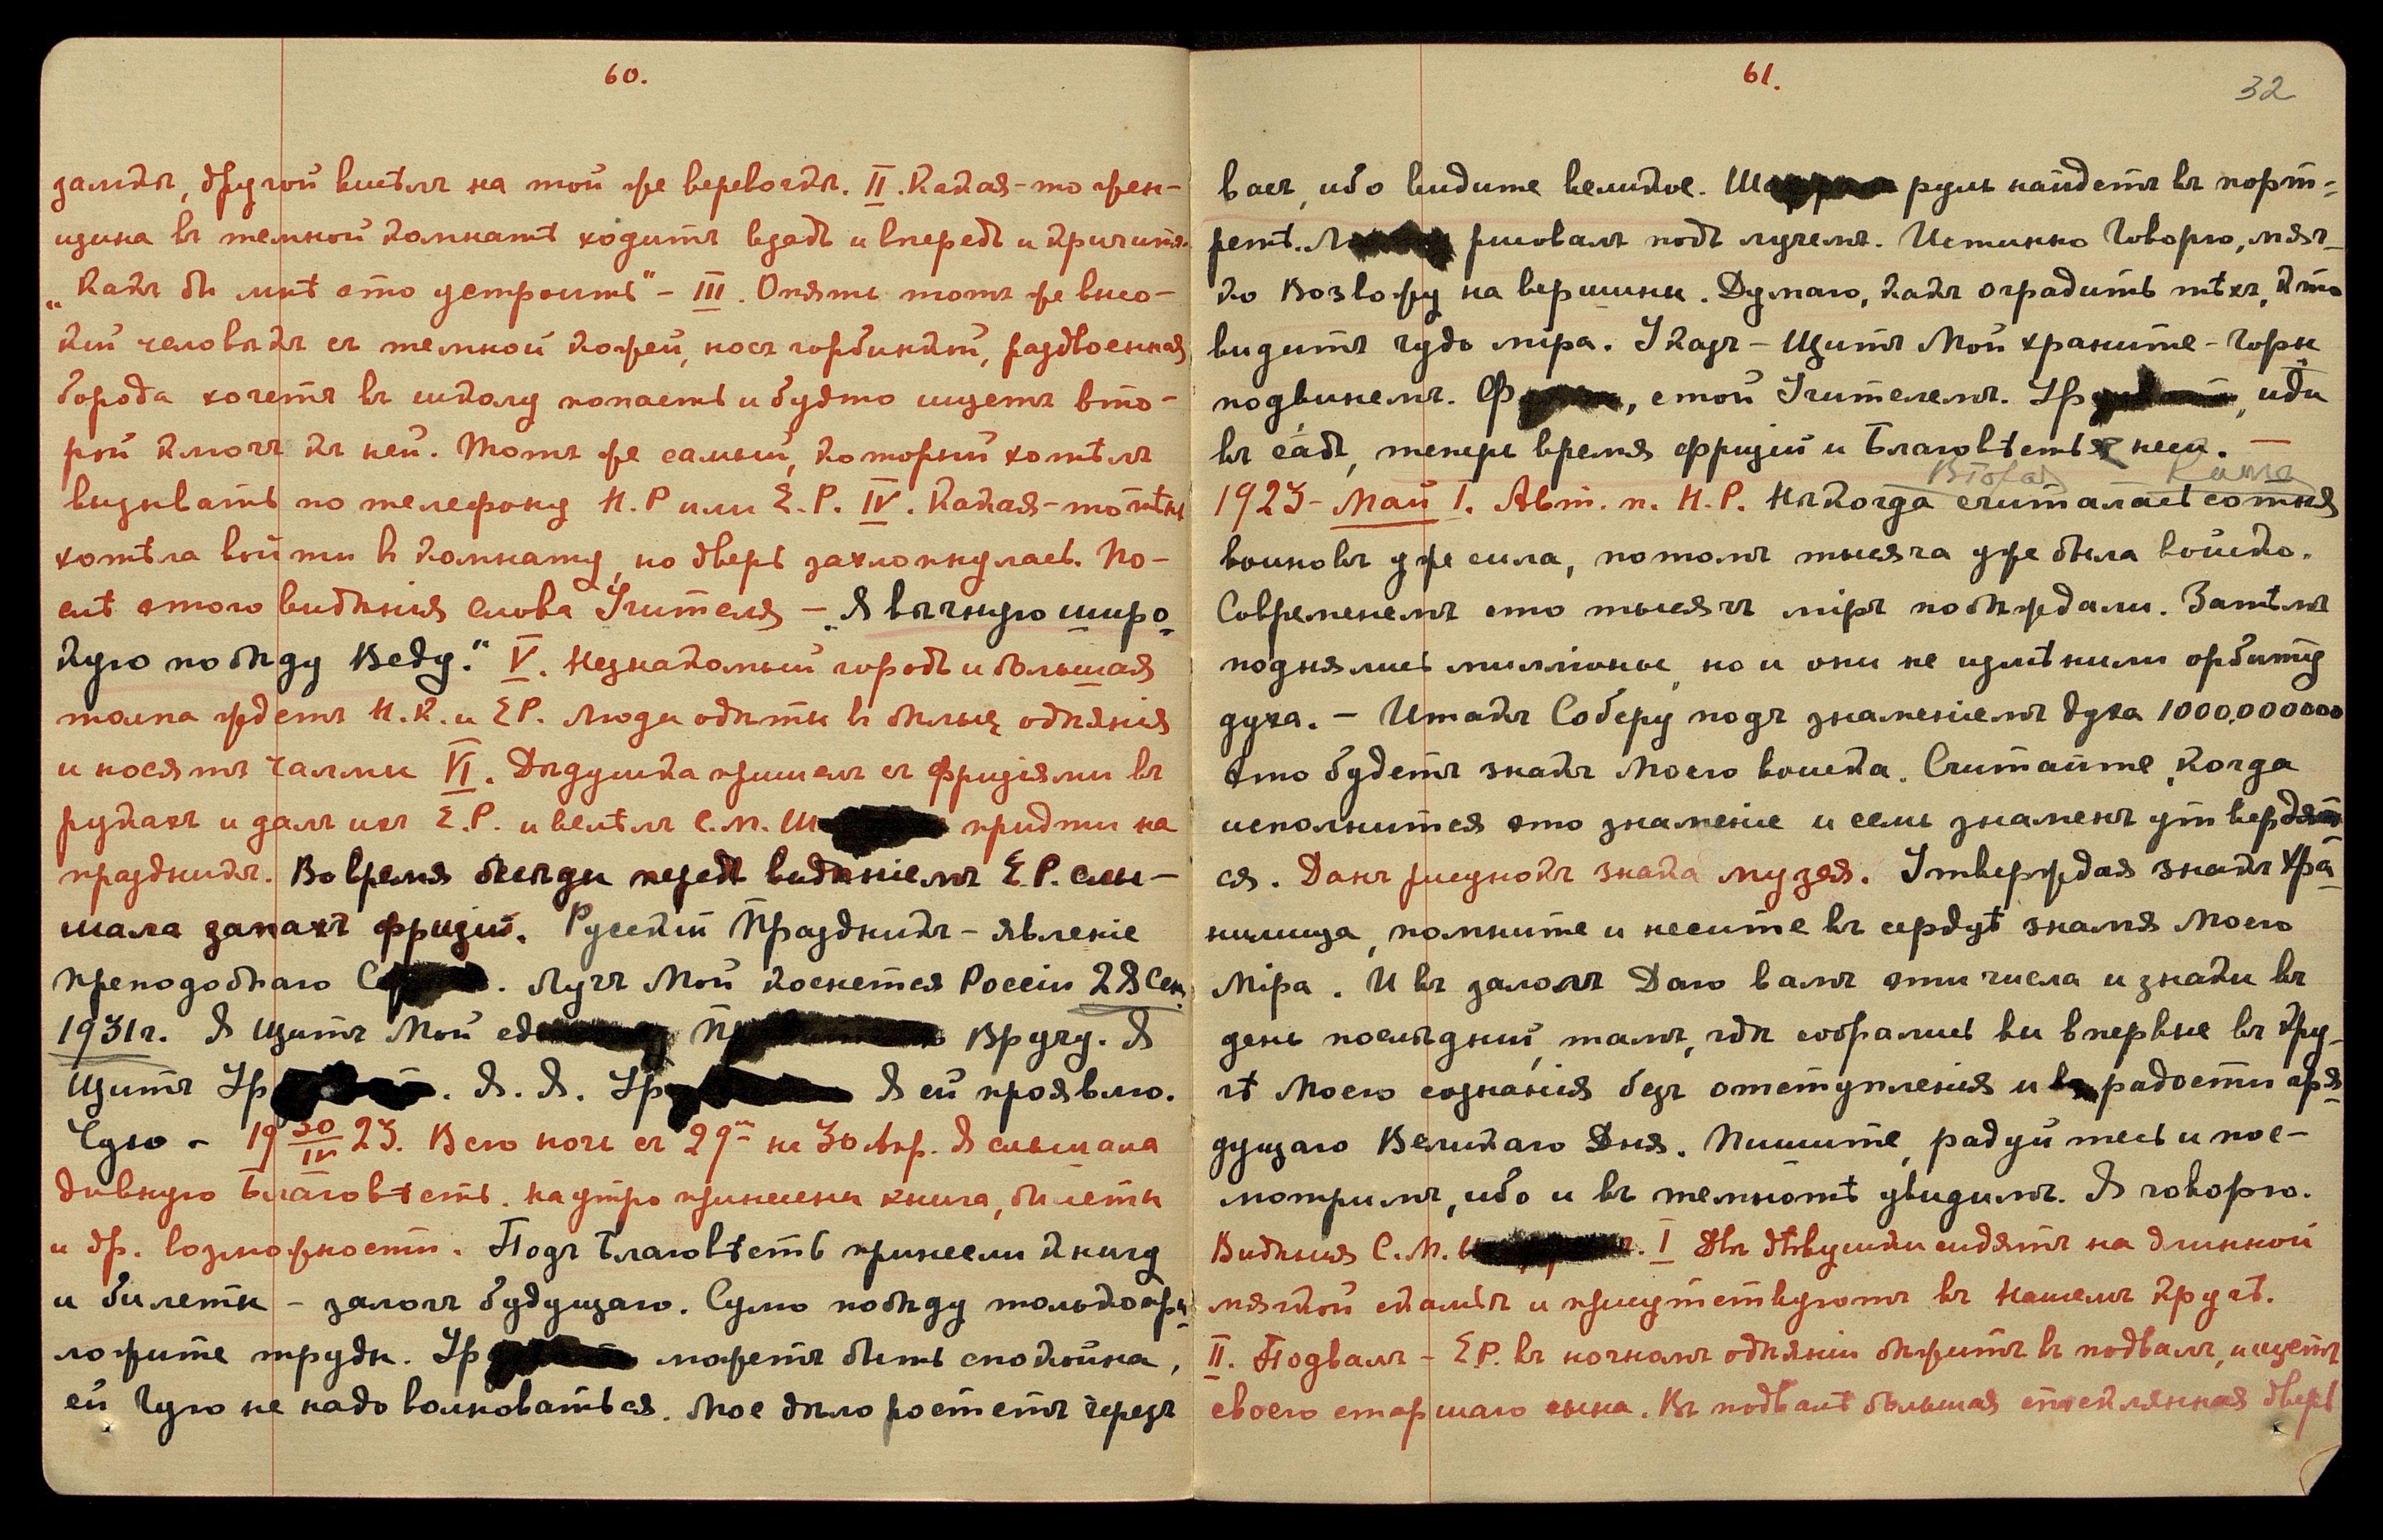 60.
замкѣ, другой висѣлъ на той же веревочкѣ. II. Какая-то жен-
щина въ темной комнатѣ ходитъ взадъ и впередъ и кричитъ.
„Какъ бы мнѣ это устроить" – III. Опять тотъ же высо-
кій человѣкъ съ темной кожей, носъ горбинкой, раздвоенная
борода хочетъ въ школу попасть и будто ищетъ вто-
рой ключъ къ ней. Тотъ же самый, который хотѣлъ
вызвать по телефону Н.Р или Е.Р. IV. Какая-то тѣнь
хотѣла войти в комнату, но дверь захлопнулась. По-
слѣ этого видѣнія слова Учителя – „Я вѣчную широ-
кую побѣду Веду." V. Незнакомый городъ и большая
толпа ждетъ Н.К. и Е.Р. Люди одѣты въ бѣлыя одѣянія
и носятъ чалмы VI. Дѣдушка пришелъ съ фризіями въ
рукахъ и далъ ихъ Е.Р. и велѣлъ С.М. Ш придти на
праздникъ. Во время бесѣды передъ видѣніемъ Е.Р. слы-
шала запахъ фризій. Русскій Праздникъ – явленіе
Преподобнаго С . Лучъ Мой коснется Россіи 28 Сен.
1931г. Я Щитъ Мой ед П Вручу. Я
Щитъ Ур . Я. Я. Ур Я ей проявлю.
Чую – 19 30/IV 23. Всю ночь съ 29го на 30 Апр. Я слышала
дивную Благовѣсть. на утро принесены книга, билеты
и др. возможности. Подъ Благовѣсть принесли книгу
и билеты – залогъ будущаго. Сумѣю побѣду только при-
ложите труды. Ур можетъ быть спокойна,
ей Чую не надо волноваться. Мое дѣло ростетъ черезъ
61.
32
васъ, ибо видите великое. Ш руль найдетъ въ порт-
ретѣ. Л рисовалъ подъ лучемъ. Истинно Говорю, мяг-
ко Возвожу на вершины. Думаю, какъ оградить тѣхъ, кто
видитъ чудо міра. Указъ – Щитъ Мой храните – Горы
подвинемъ. Ф , стой Учителемъ. Ур , иди
въ садъ, теперь время фризій и Благовѣсть неси. –
1923 – Май 1. Авт. п. Н.Р. Нѣкогда считалась сотня
воиновъ уже сила, потомъ тысяча уже была войско.
Современемъ сто тысячъ міръ побѣждали. Затѣмъ
поднялись милліоны, но и они не измѣнили орбиту
духа. – Итакъ Соберу подъ знаменіемъ духа 1000.000000
это будетъ знакъ Моего войска. Считайте, когда
исполнится это знаменіе и семь знаменъ утвердят-
ся. Данъ рисунокъ знака музея. Утверждая знакъ Хра-
нилища, помните и несите въ сердцѣ знамя Моего
Міра. И въ залогъ Даю вамъ эти числа и знаки въ
день послѣдній, тамъ, гдѣ собрались вы впервые въ Кру-
гѣ Моего сознанія безъ отступленія и въ радости гря-
дущаго Великаго Дня. Пишите, радуйтесь и пос-
мотримъ, ибо и въ темнотѣ увидимъ. Я говорю.
Видѣнія С.М. Ш . I Двѣ дѣвушки сидятъ на длинной
мягкой скамьѣ и присутствуютъ въ Нашемъ кругѣ.
II. Подвалъ – Е.Р. въ ночномъ одѣяніи бѣжитъ въ подвалъ, ищетъ
своего старшаго сына. Въ подвалѣ большая стеклянная дверь